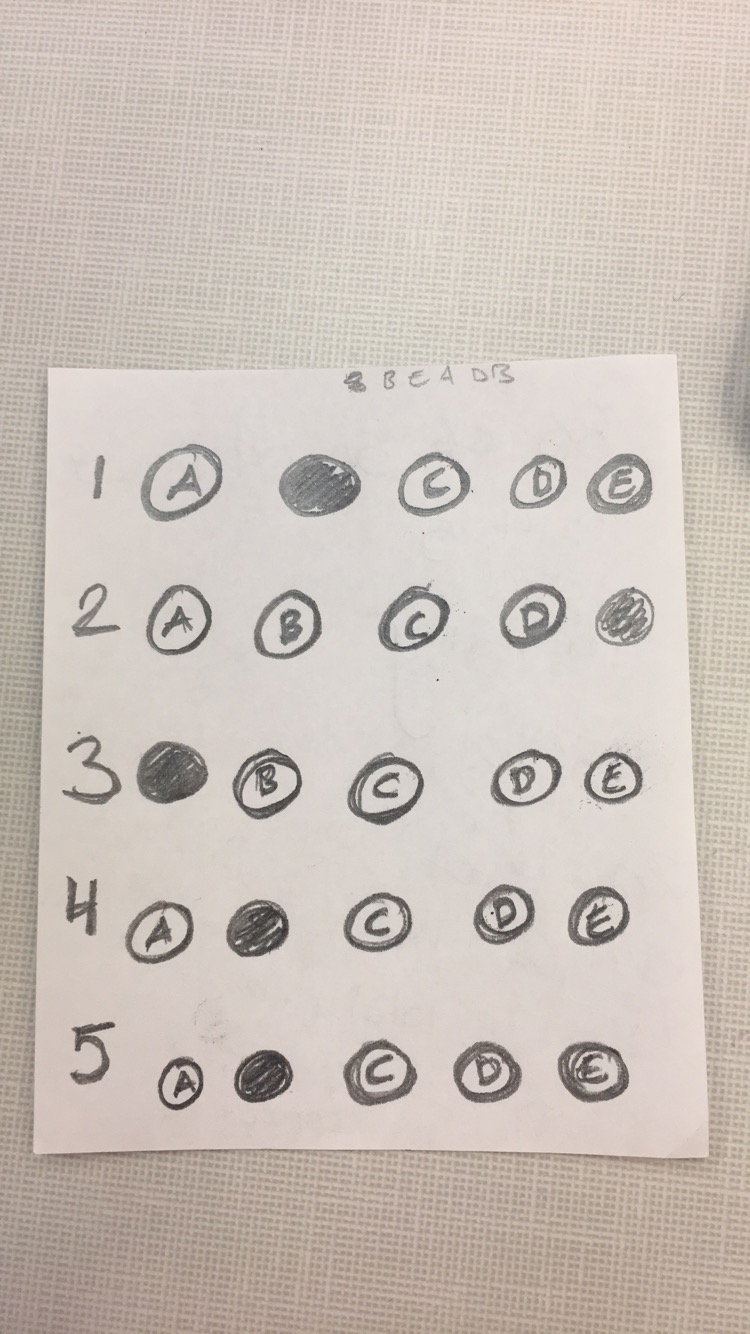 B E A D B
1 A C D E
2 A B C D
3 B C D E
4 A C D E
5 A C D E